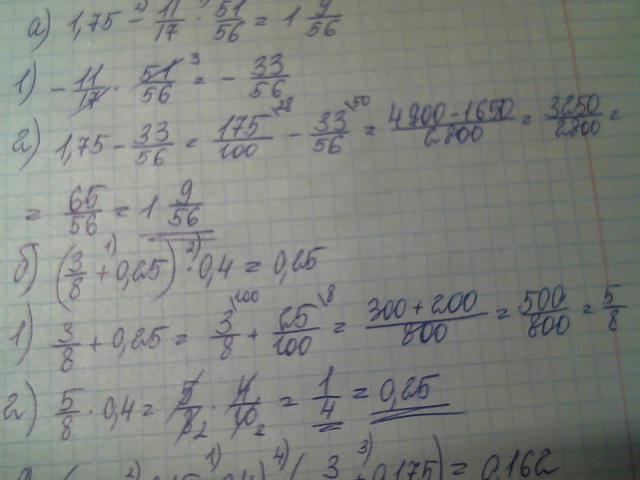 а) 1,75 - 11/17 · 51/56 = 1 9/56
1) - 11/17 · 51/56 = - 33/56
2) 1,75 - 33/56 = 175/100 - 33/56 = 4900-1650/2800 = 3250/2800 =
= 65/56 = 1 9/56
б) (3/8 + 0,25) · 0,4 = 0,25
1) 3/8 + 0,25 = 3/8 + 25/100 = 300+200/800 = 500/800 = 5/8
2) 5/8 · 0,4 = 5/8 · 4/10 = 1/4 = 0,25
3 + 0,175) = 0,162